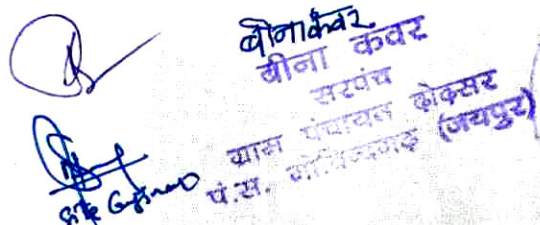 बीनाकंवर
बीना कंवर
सरपंच
ग्राम पंचायत ढोढसर
पं.स. गोविन्दगढ़ (जयपुर)